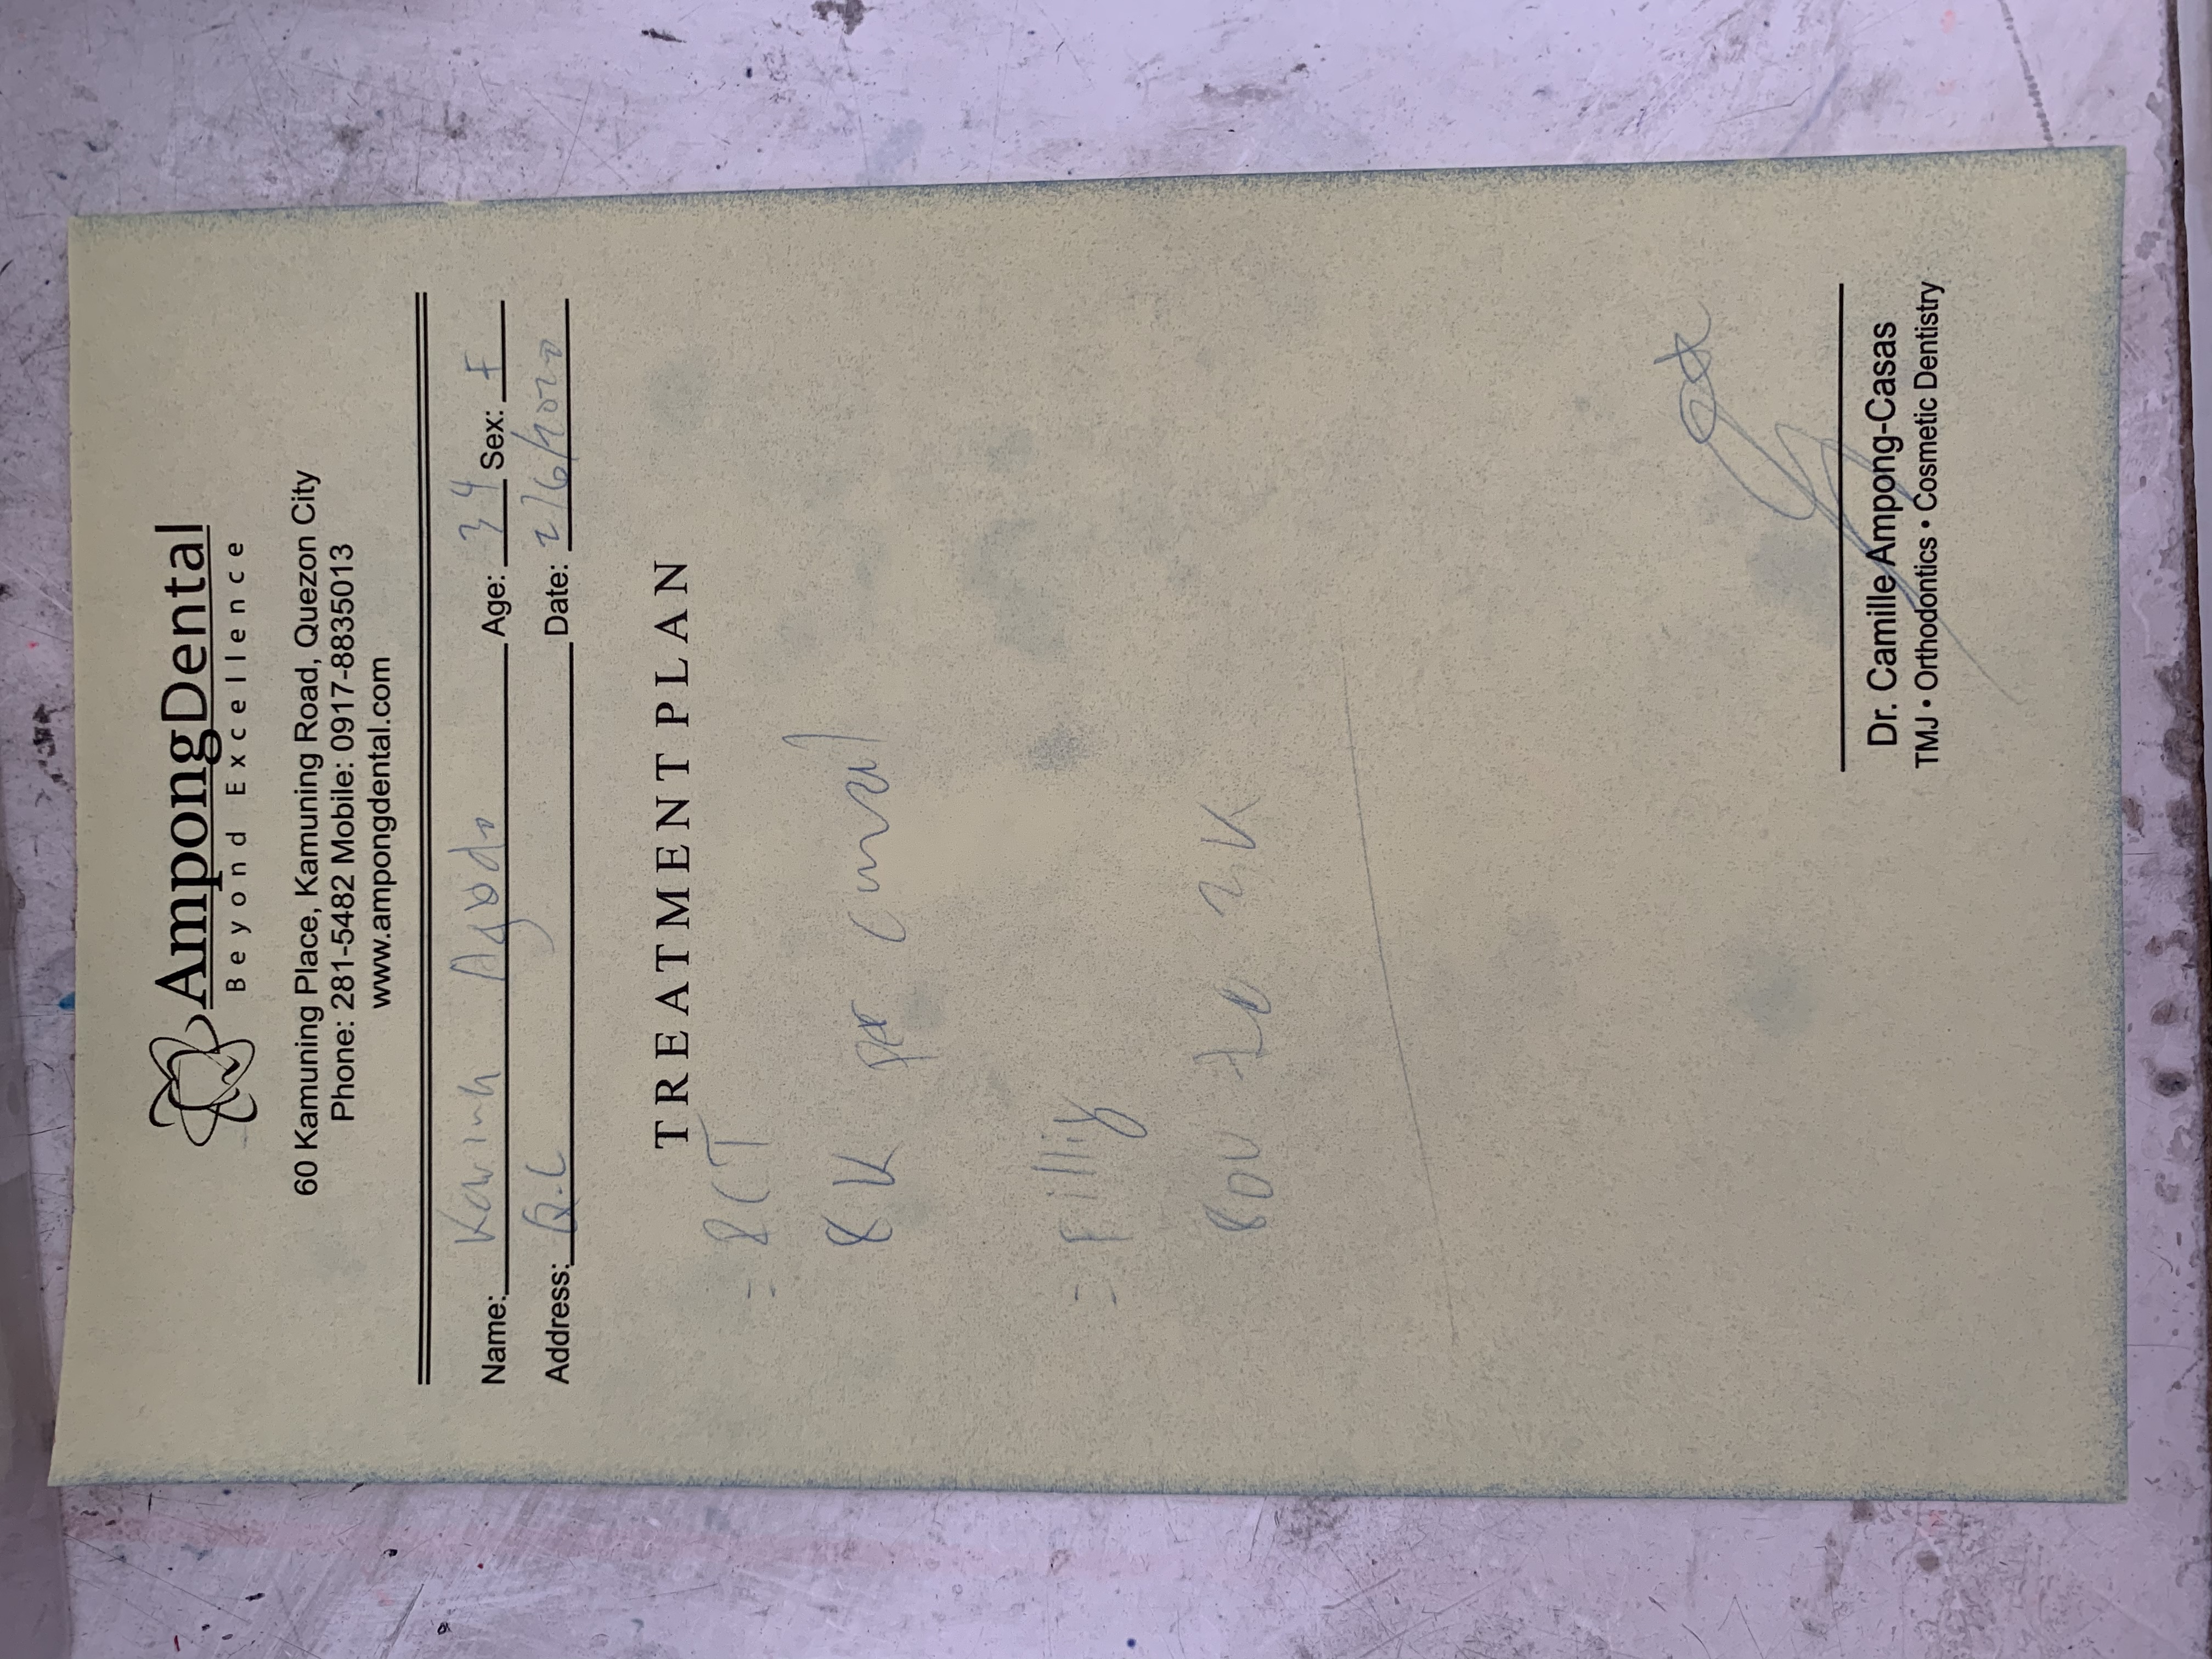 AmpongDental
Beyond Excellence
60 Kamuning Place, Kamuning Road, Quezon City
Phone: 281-5482 Mobile: 0917-8835013
www.ampongdental.com
Name: Karina Age: 34 Sex: F
Address: Q.C Date: 2/6/2020
TREATMENT PLAN
= RCT
8K per canal
= Filling
800 to 3K
Dr. Camille Ampong-Casas
TMJ • Orthodontics • Cosmetic Dentistry